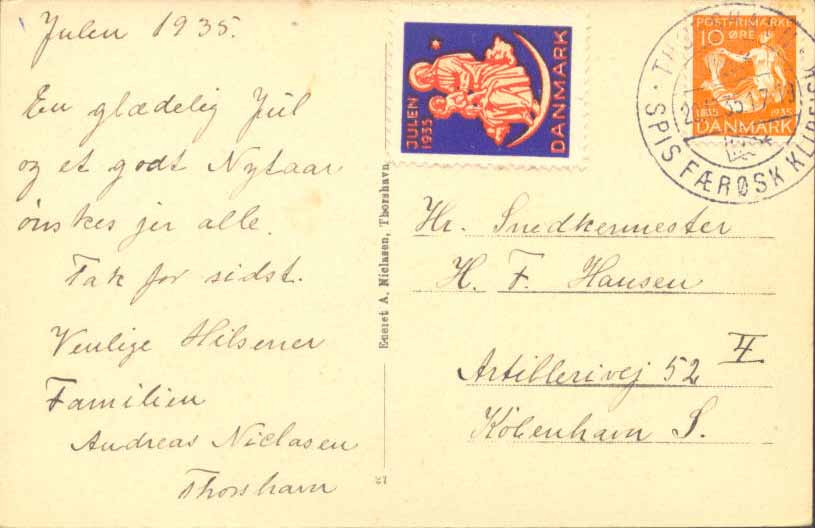 Julen 1935.
En glædelig Jul
og et godt Nytaar
ønskes jer alle.
Tak for sidst.
Venlige Hilsener
Familien
Andreas Niclasen
Thorshavn
JULEN
1935
DANMARK
POSTFRIMÆRKE
10 ØRE
1835 1935
DANMARK
SPIS FÆRØSK KLIPFISK
Eneret A. Niclasen, Thorshavn
Hr. Snedkermester
H. F. Hansen
Artillerivej 52
København S.